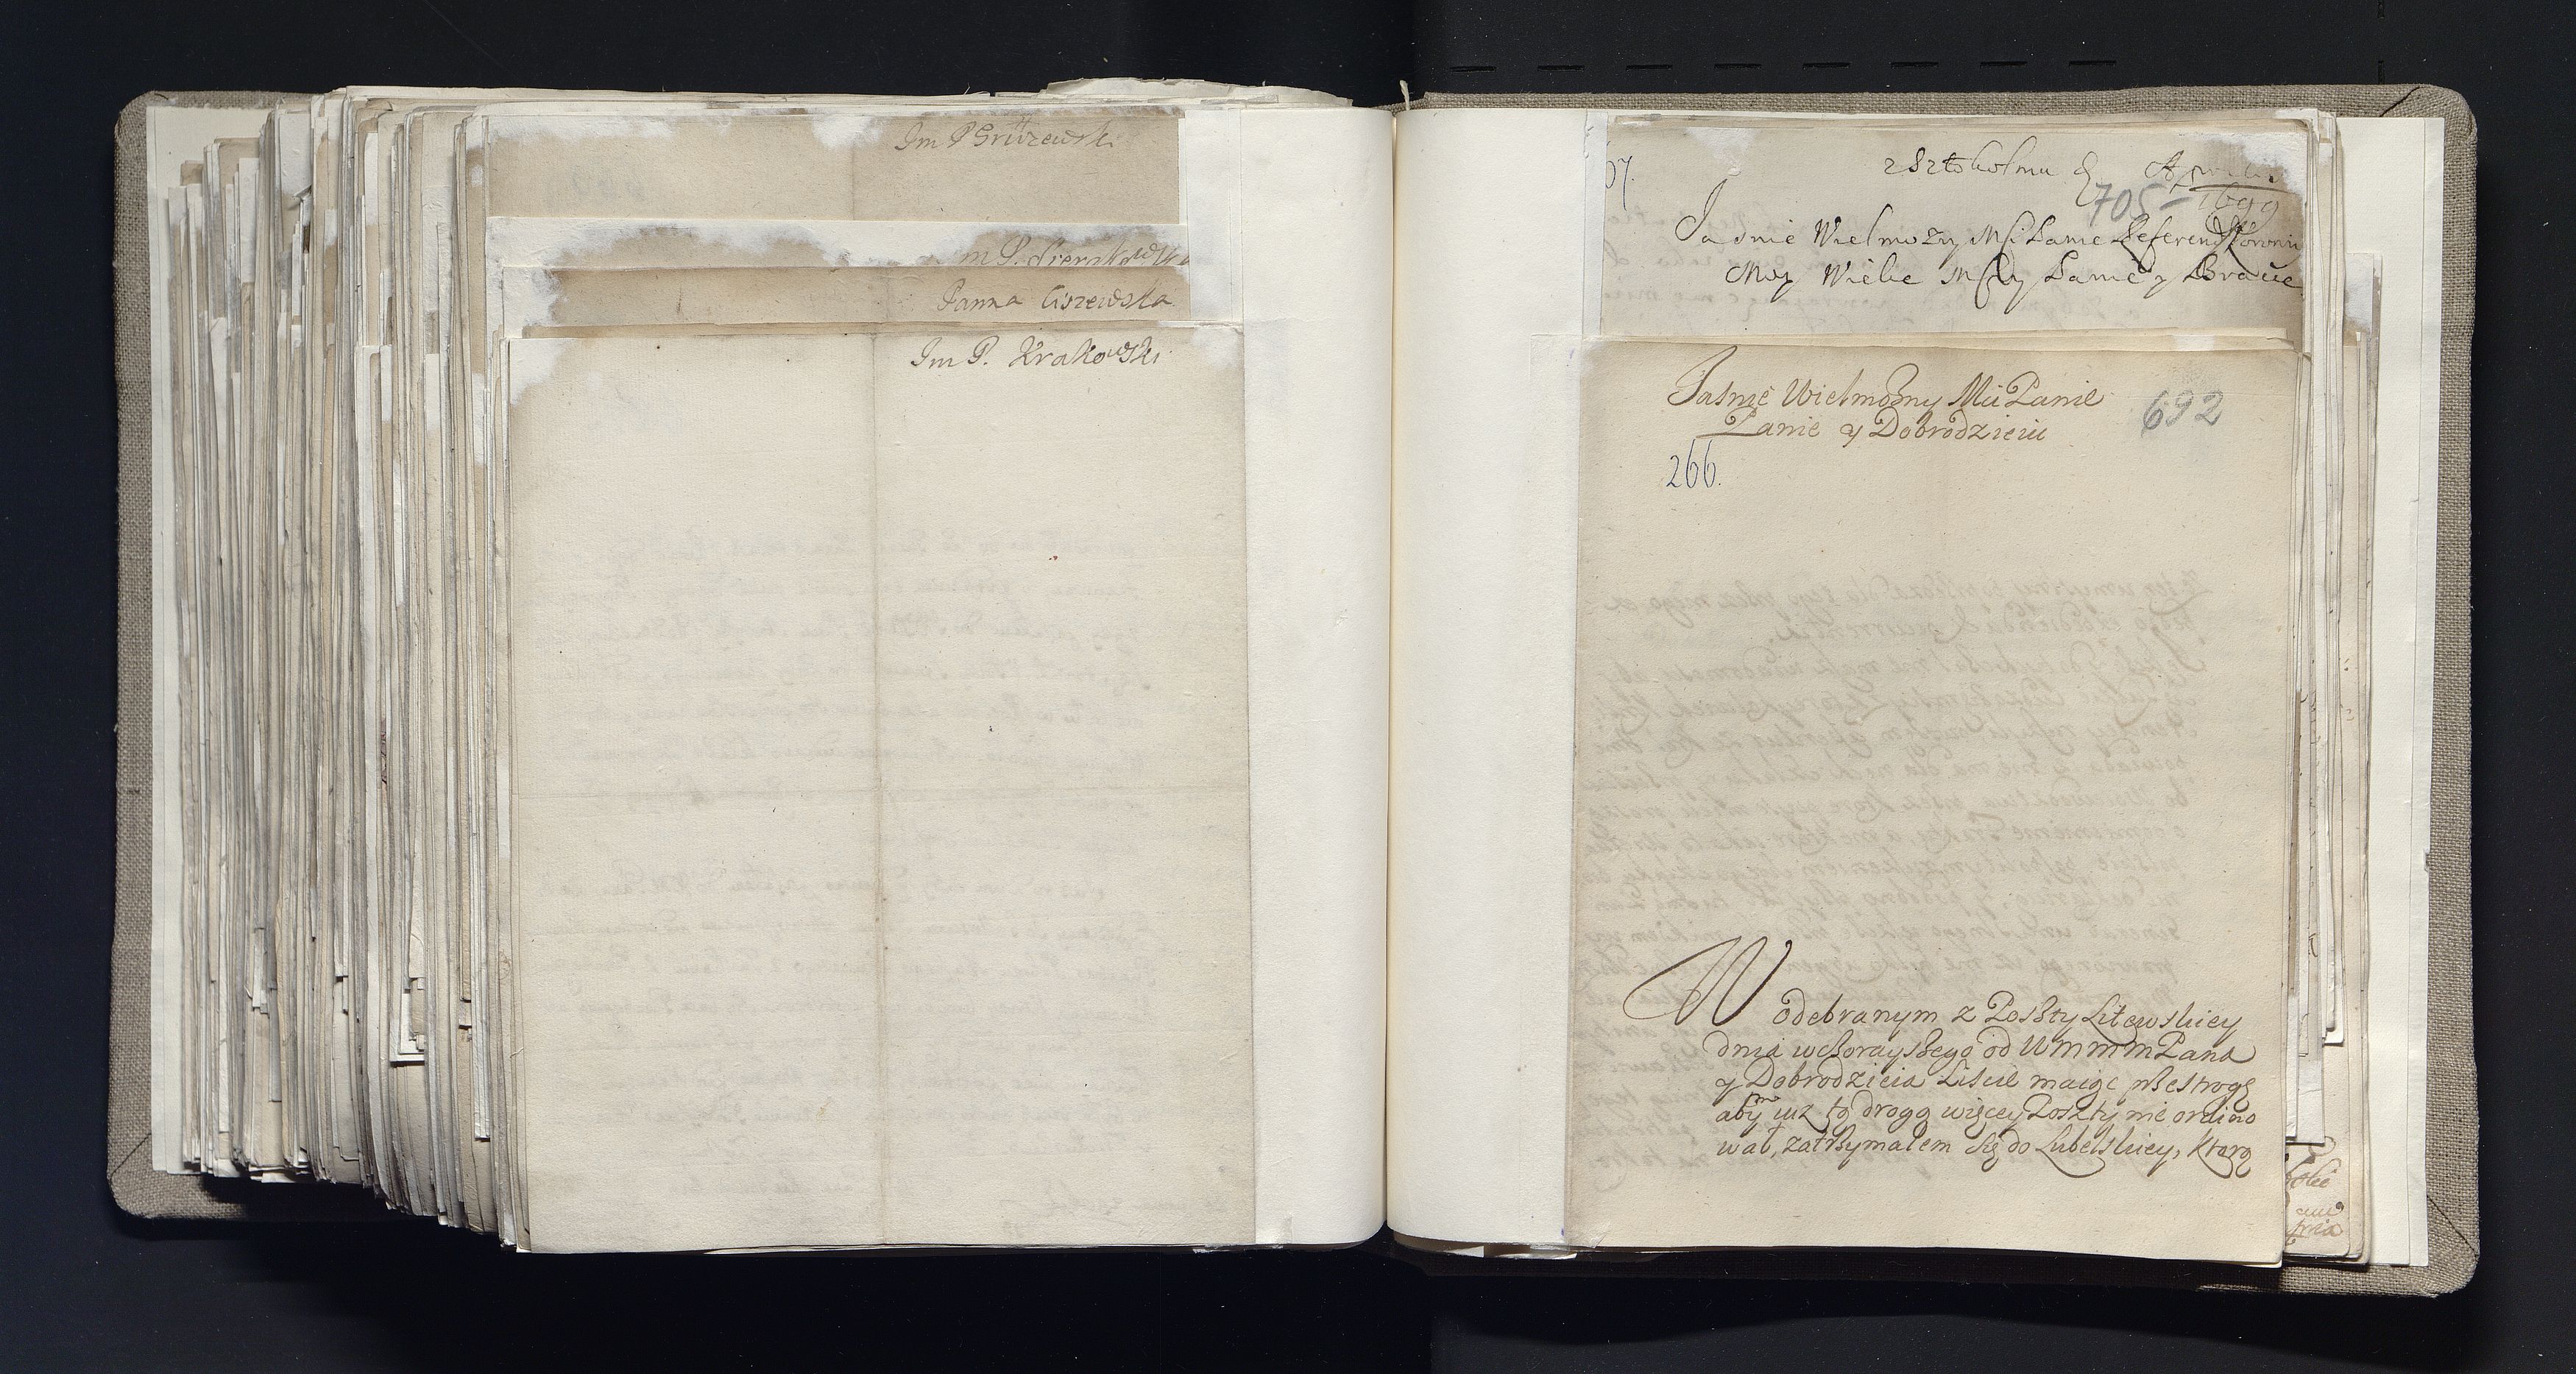 Im P Gruzewski
m P. Sierakowski
Panna Ciszewska
Im P. Krakowski
z Sztokolmu
705 1699
Jasnie Wielmozny Mśi Panie Referend Koronny
Moy Wielce Mśćwy Panie y Bracie
Jasnie Wielmożny Mśi Panie
Panie y Dobrodzieiu
692
266.
W odebranym z Poszty Litewskiey
dnia wczorayszego od WmmmPana
y Dobrodzieia Liście maiąc przestrogę
abym iuz tą drogą więcey Poszty nie ordino
wał, zatrzymałem się do Lubelskiey, ktorą